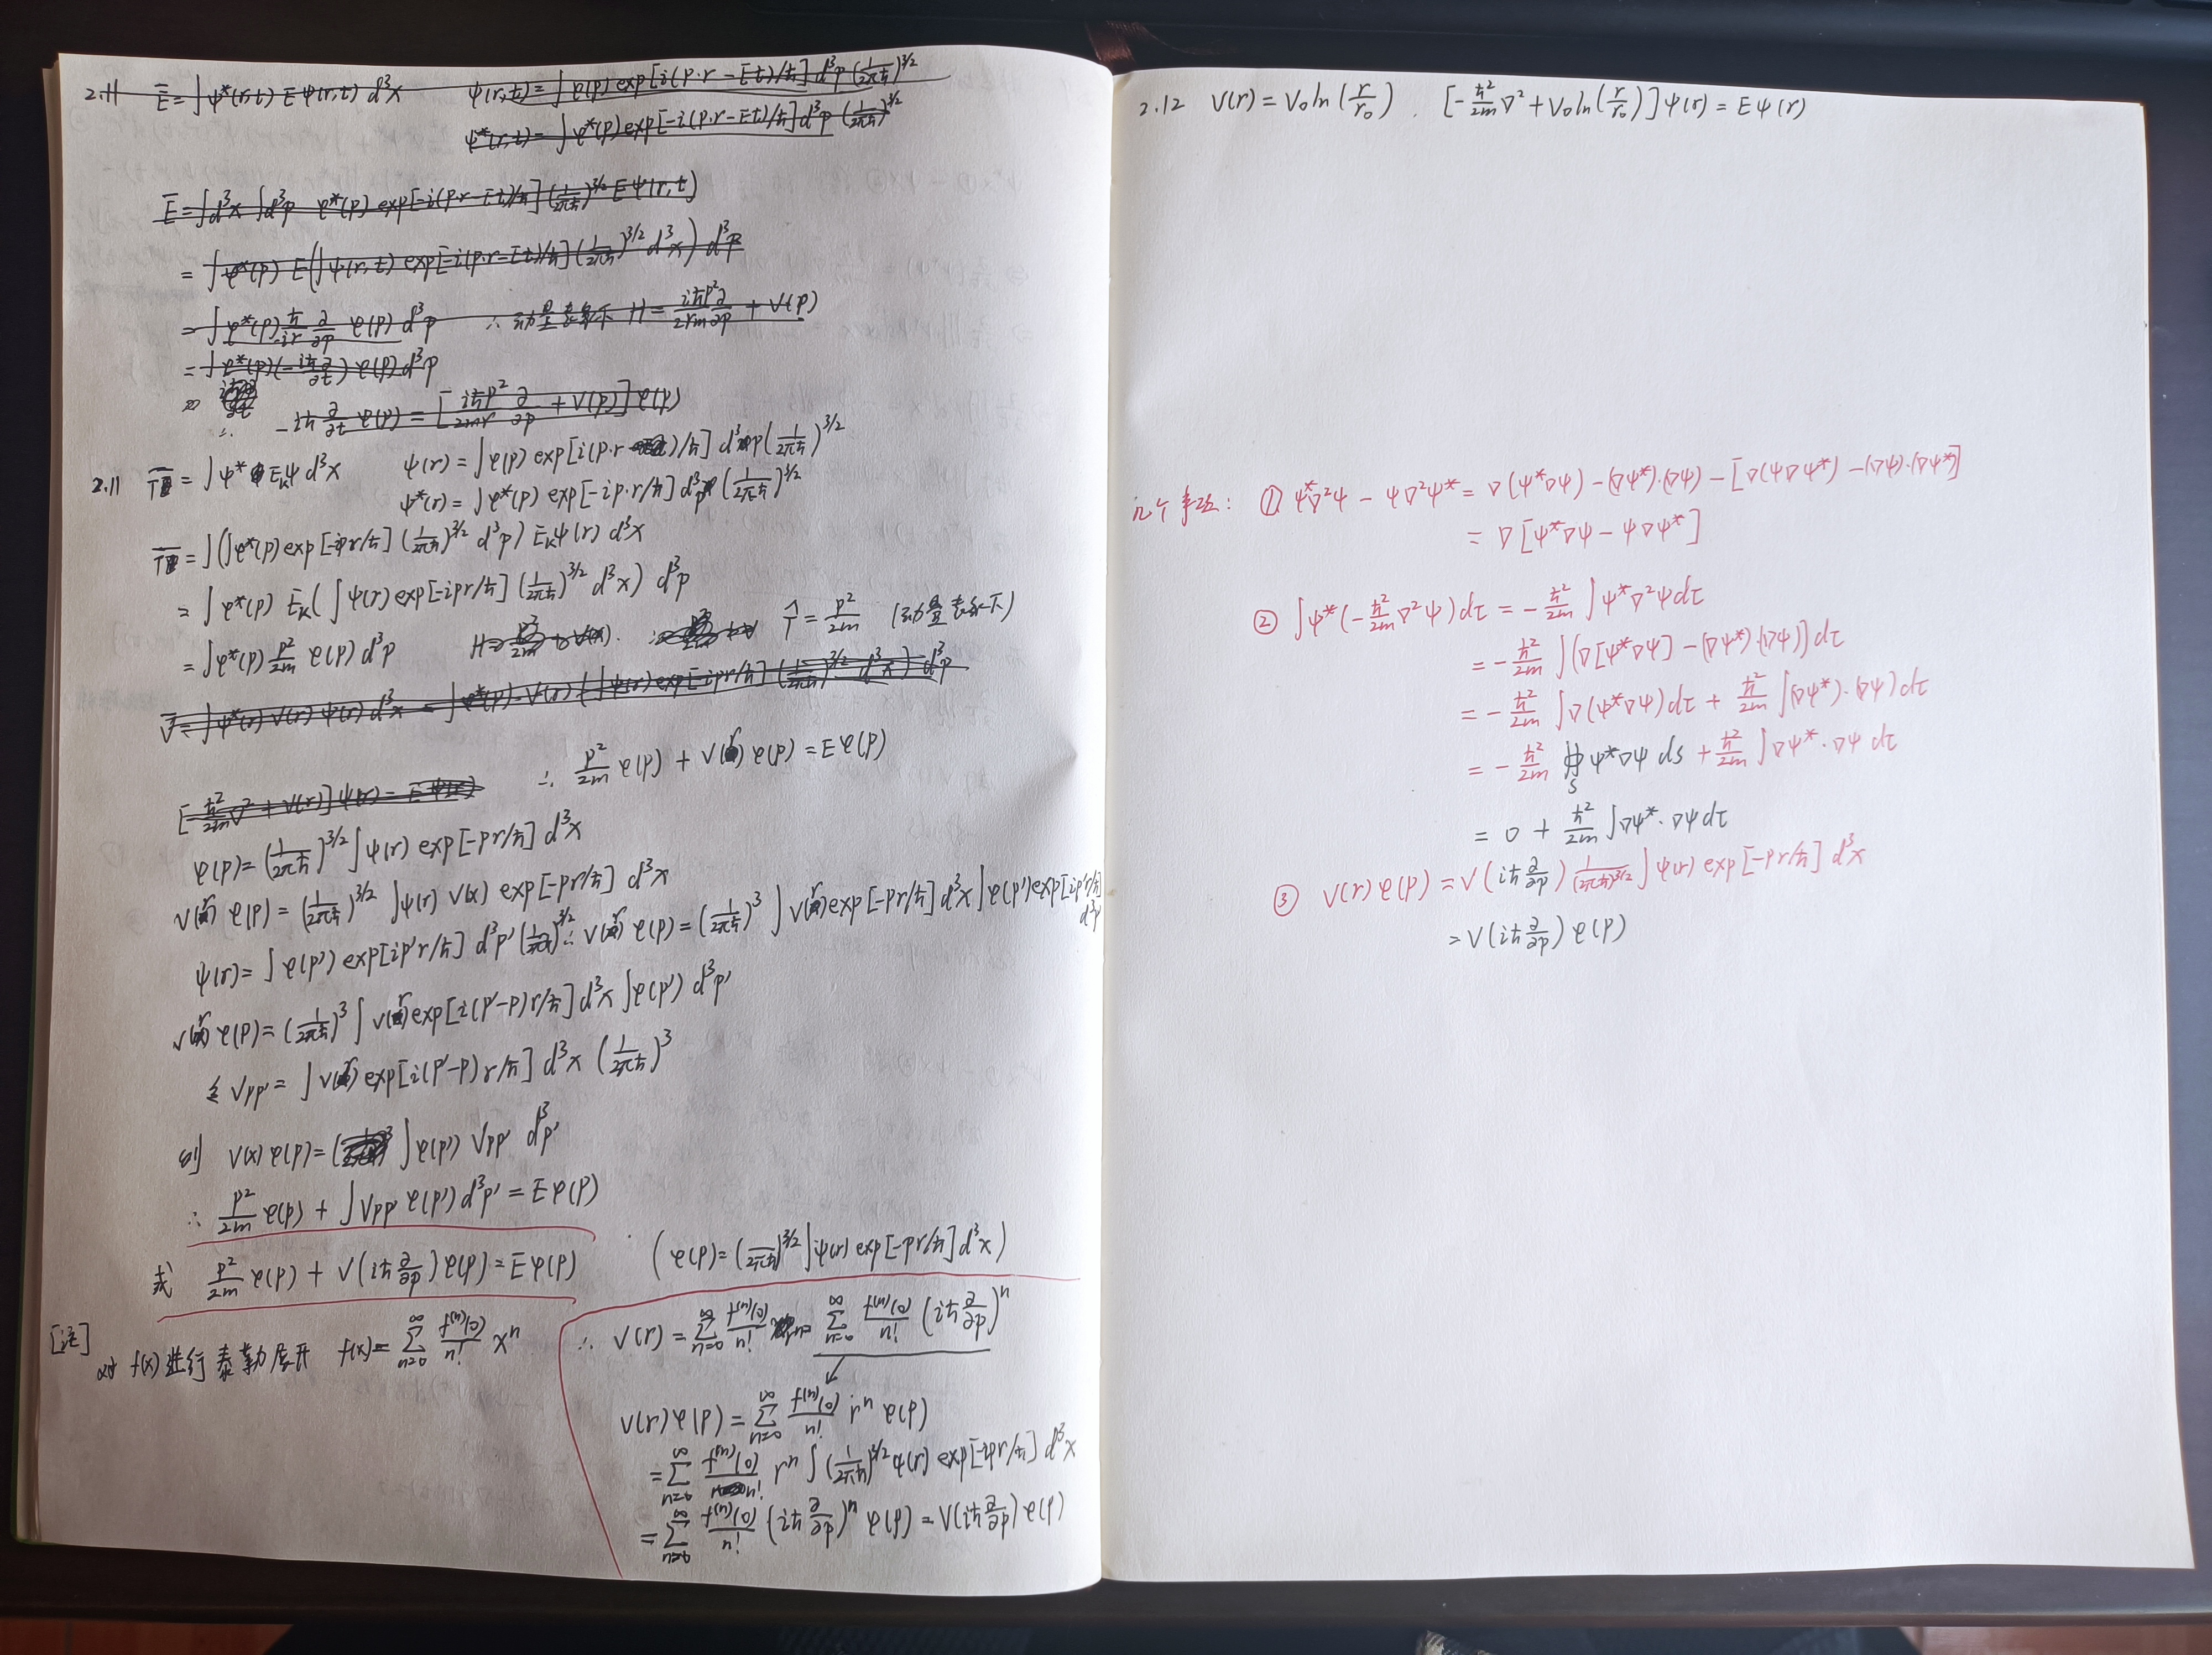 2.11 Ē = ∫ψ*(r,t) E ψ(r,t) d³x ψ(r,t) = ∫φ(p) exp[i(p·r − Et)/ħ] d³p (1/2πħ)^3/2
ψ*(r,t) = ∫φ*(p) exp[−i(p·r − Et)/ħ] d³p (1/2πħ)^3/2
Ē = ∫d³x ∫d³p φ*(p) exp[−i(p·r − Et)/ħ] (1/2πħ)^3/2 E ψ(r,t)
= ∫φ*(p) E (∫ψ(r,t) exp[−i(p·r − Et)/ħ] (1/2πħ)^3/2 d³x) d³p
= ∫φ*(p) ħ/ir ∂/∂p φ(p) d³p ∴ 动量表象下 H = iħp²∂/2rm∂p + V(p)
= ∫φ*(p) (−iħ∂/∂t) φ(p) d³p
∴ −iħ ∂/∂t φ(p) = [iħp²/2mr ∂/∂p + V(p)] φ(p)
2.11 T̄ = ∫ψ* E_k ψ d³x ψ(r) = ∫φ(p) exp[i(p·r)/ħ] d³p (1/2πħ)^3/2
ψ*(r) = ∫φ*(p) exp[−ip·r/ħ] d³p (1/2πħ)^3/2
T̄ = ∫(∫φ*(p) exp[−ipr/ħ] (1/2πħ)^3/2 d³p) E_k ψ(r) d³x
= ∫φ*(p) E_k (∫ψ(r) exp[−ipr/ħ] (1/2πħ)^3/2 d³x) d³p
= ∫φ*(p) p²/2m φ(p) d³p T̂ = p²/2m (动量表象下)
V̄ = ∫ψ*(r) V(r) ψ(r) d³x = ∫φ*(p) V(r) (∫ψ(r) exp[−ipr/ħ] (1/2πħ)^3/2 d³x) d³p
[−ħ²/2m ∇² + V(r)] ψ(r) = Eψ(r) ∴ p²/2m φ(p) + V(r) φ(p) = Eφ(p)
φ(p) = (1/2πħ)^3/2 ∫ψ(r) exp[−pr/ħ] d³x
V(r) φ(p) = (1/2πħ)^3/2 ∫ψ(r) V(x) exp[−pr/ħ] d³x
ψ(r) = ∫φ(p′) exp[ip′r/ħ] d³p′ (1/2πħ)^3/2 ∴ V(r) φ(p) = (1/2πħ)³ ∫V(r) exp[−pr/ħ] d³x ∫φ(p′) exp[ip′r/ħ] d³p′
V(r) φ(p) = (1/2πħ)³ ∫V(r) exp[i(p′−p)r/ħ] d³x ∫φ(p′) d³p′
令 Vpp′ = ∫V(r) exp[i(p′−p)r/ħ] d³x (1/2πħ)³
则 V(x) φ(p) = ∫φ(p′) Vpp′ d³p′
∴ p²/2m φ(p) + ∫Vpp′ φ(p′) d³p′ = Eφ(p)
或 p²/2m φ(p) + V(iħ ∂/∂p) φ(p) = Eφ(p) (φ(p) = (1/2πħ)^3/2 ∫ψ(r) exp[−pr/ħ] d³x)
[注]
对 f(x) 进行泰勒展开 f(x) = ∑_{n=0}^∞ f⁽ⁿ⁾(0)/n! xⁿ ∴ V(r) = ∑_{n=0}^∞ f⁽ⁿ⁾(0)/n! rⁿ = ∑_{n=0}^∞ f⁽ⁿ⁾(0)/n! (iħ ∂/∂p)ⁿ
V(r)φ(p) = ∑_{n=0}^∞ f⁽ⁿ⁾(0)/n! rⁿ φ(p)
= ∑_{n=0}^∞ f⁽ⁿ⁾(0)/n! rⁿ ∫(1/2πħ)^3/2 ψ(r) exp[−ipr/ħ] d³x
= ∑_{n=0}^∞ f⁽ⁿ⁾(0)/n! (iħ ∂/∂p)ⁿ φ(p) = V(iħ ∂/∂p) φ(p)
2.12 V(r) = V₀ln(r/r₀) . [−ħ²/2m ∇² + V₀ln(r/r₀)] ψ(r) = Eψ(r)
几个事项: ① ψ*∇²ψ − ψ∇²ψ* = ∇(ψ*∇ψ) − (∇ψ*)·(∇ψ) − [∇(ψ∇ψ*) − (∇ψ)·(∇ψ*)]
= ∇[ψ*∇ψ − ψ∇ψ*]
② ∫ψ*(−ħ²/2m ∇²ψ)dτ = −ħ²/2m ∫ψ*∇²ψdτ
= −ħ²/2m ∫(∇[ψ*∇ψ] − (∇ψ*)·(∇ψ)]dτ
= −ħ²/2m ∫∇(ψ*∇ψ)dτ + ħ²/2m ∫(∇ψ*)·(∇ψ)dτ
= −ħ²/2m ∯_S ψ*∇ψ ds + ħ²/2m ∫∇ψ*·∇ψ dτ
= 0 + ħ²/2m ∫∇ψ*·∇ψdτ
③ V(r)φ(p) = V(iħ ∂/∂p) 1/(2πħ)^3/2 ∫ψ(r) exp[−pr/ħ] d³x
= V(iħ ∂/∂p) φ(p)